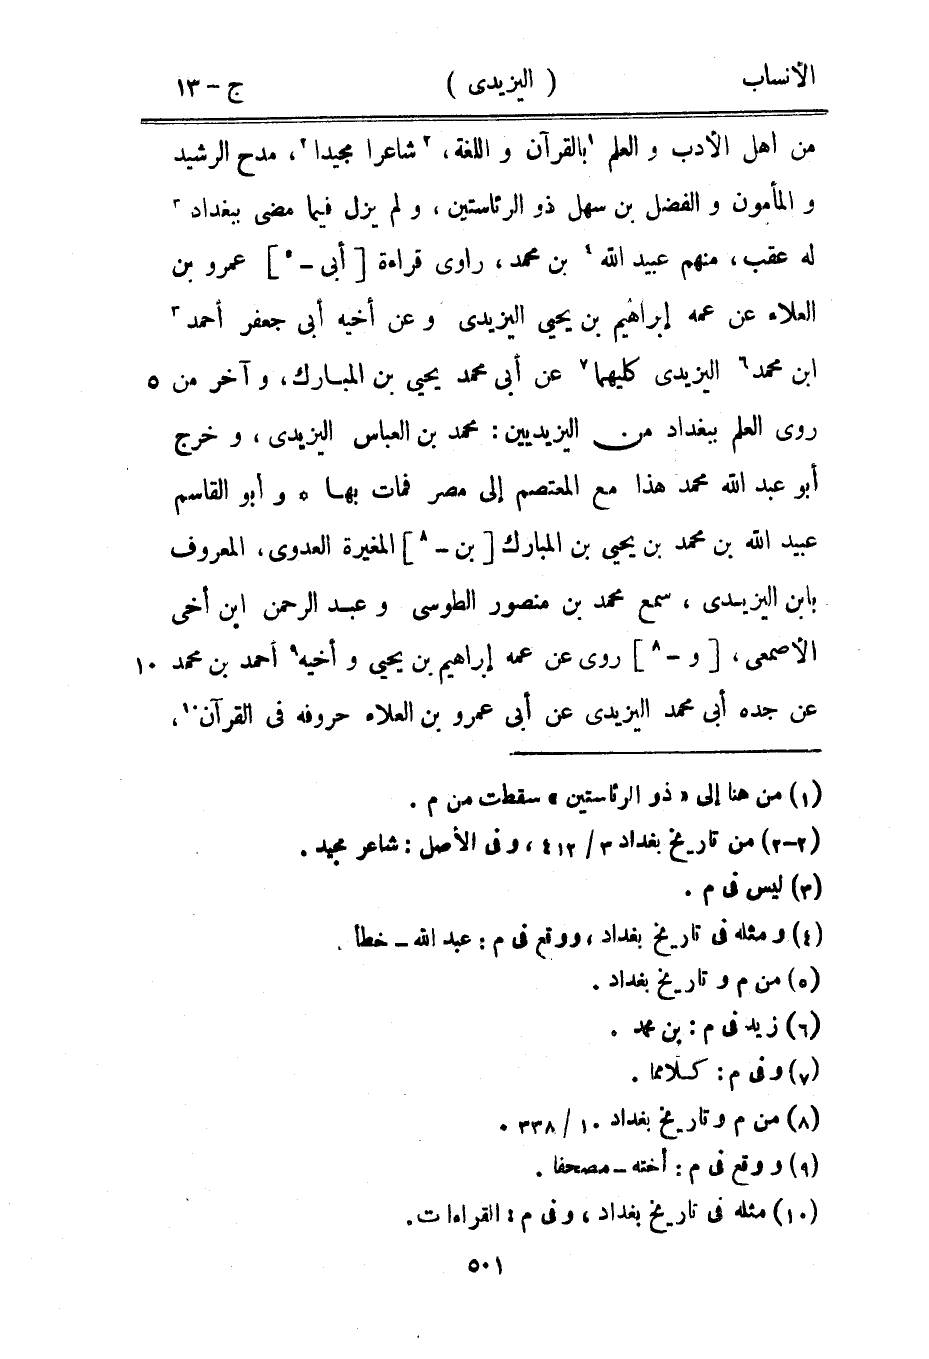 الأنساب ( اليزيدى ) ج – ١٣
من اهل الأدب و العلم ١بالقرآن و اللغة، ٢شاعرا مجيدا٢، مدح الرشيد
و المأمون و الفضل بن سهل ذو الرئاستين، و لم يزل فيما مضى ببغداد٣
له عقب، منهم عبيد الله٤ بن محمد، راوى قراءة [ أبى – ٥] عمرو بن
العلاء عن عمه إبراهيم بن يحيى اليزيدى و عن أخيه أبى جعفر أحمد٣
ابن محمد٦ اليزيدى كليهما٧ عن أبى محمد يحيى بن المبارك، و آخر من ٥
روى العلم ببغداد من اليزيديين: محمد بن العباس اليزيدى، و خرج
أبو عبد الله محمد هذا مع المعتصم إلى مصر فمات بها ٥ و أبو القاسم
عبيد الله بن محمد بن يحيى بن المبارك [ بن – ٨] المغيرة العدوى، المعروف
بابن اليزيدى، سمع محمد بن منصور الطوسى و عبد الرحمن ابن أخى
الأصمعى، [ و – ٨] روى عن عمه إبراهيم بن يحيى و أخيه٩ أحمد بن محمد ١٠
عن جده أبى محمد اليزيدى عن أبى عمرو بن العلاء حروفه فى القرآن١٠،
(١) من هنا إلى « ذو الرئاستين » سقطت من م .
(٢-٢) من تاريخ بغداد ٣ / ٤١٢ ، و فى الأصل : شاعر مجيد .
(٣) ليس فى م .
(٤) و مثله فى تاريخ بغداد ، ووقع فى م : عبد الله – خطأ .
(٥) من م و تاريخ بغداد .
(٦) زيد فى م : بن محمد .
(٧) و فى م : كلاهما .
(٨) من م و تاريخ بغداد ١٠ / ٣٣٨ .
(٩) و وقع فى م : أخته – مصحفا .
(١٠) مثله فى تاريخ بغداد ، و فى م : القراءات .
٥٠١